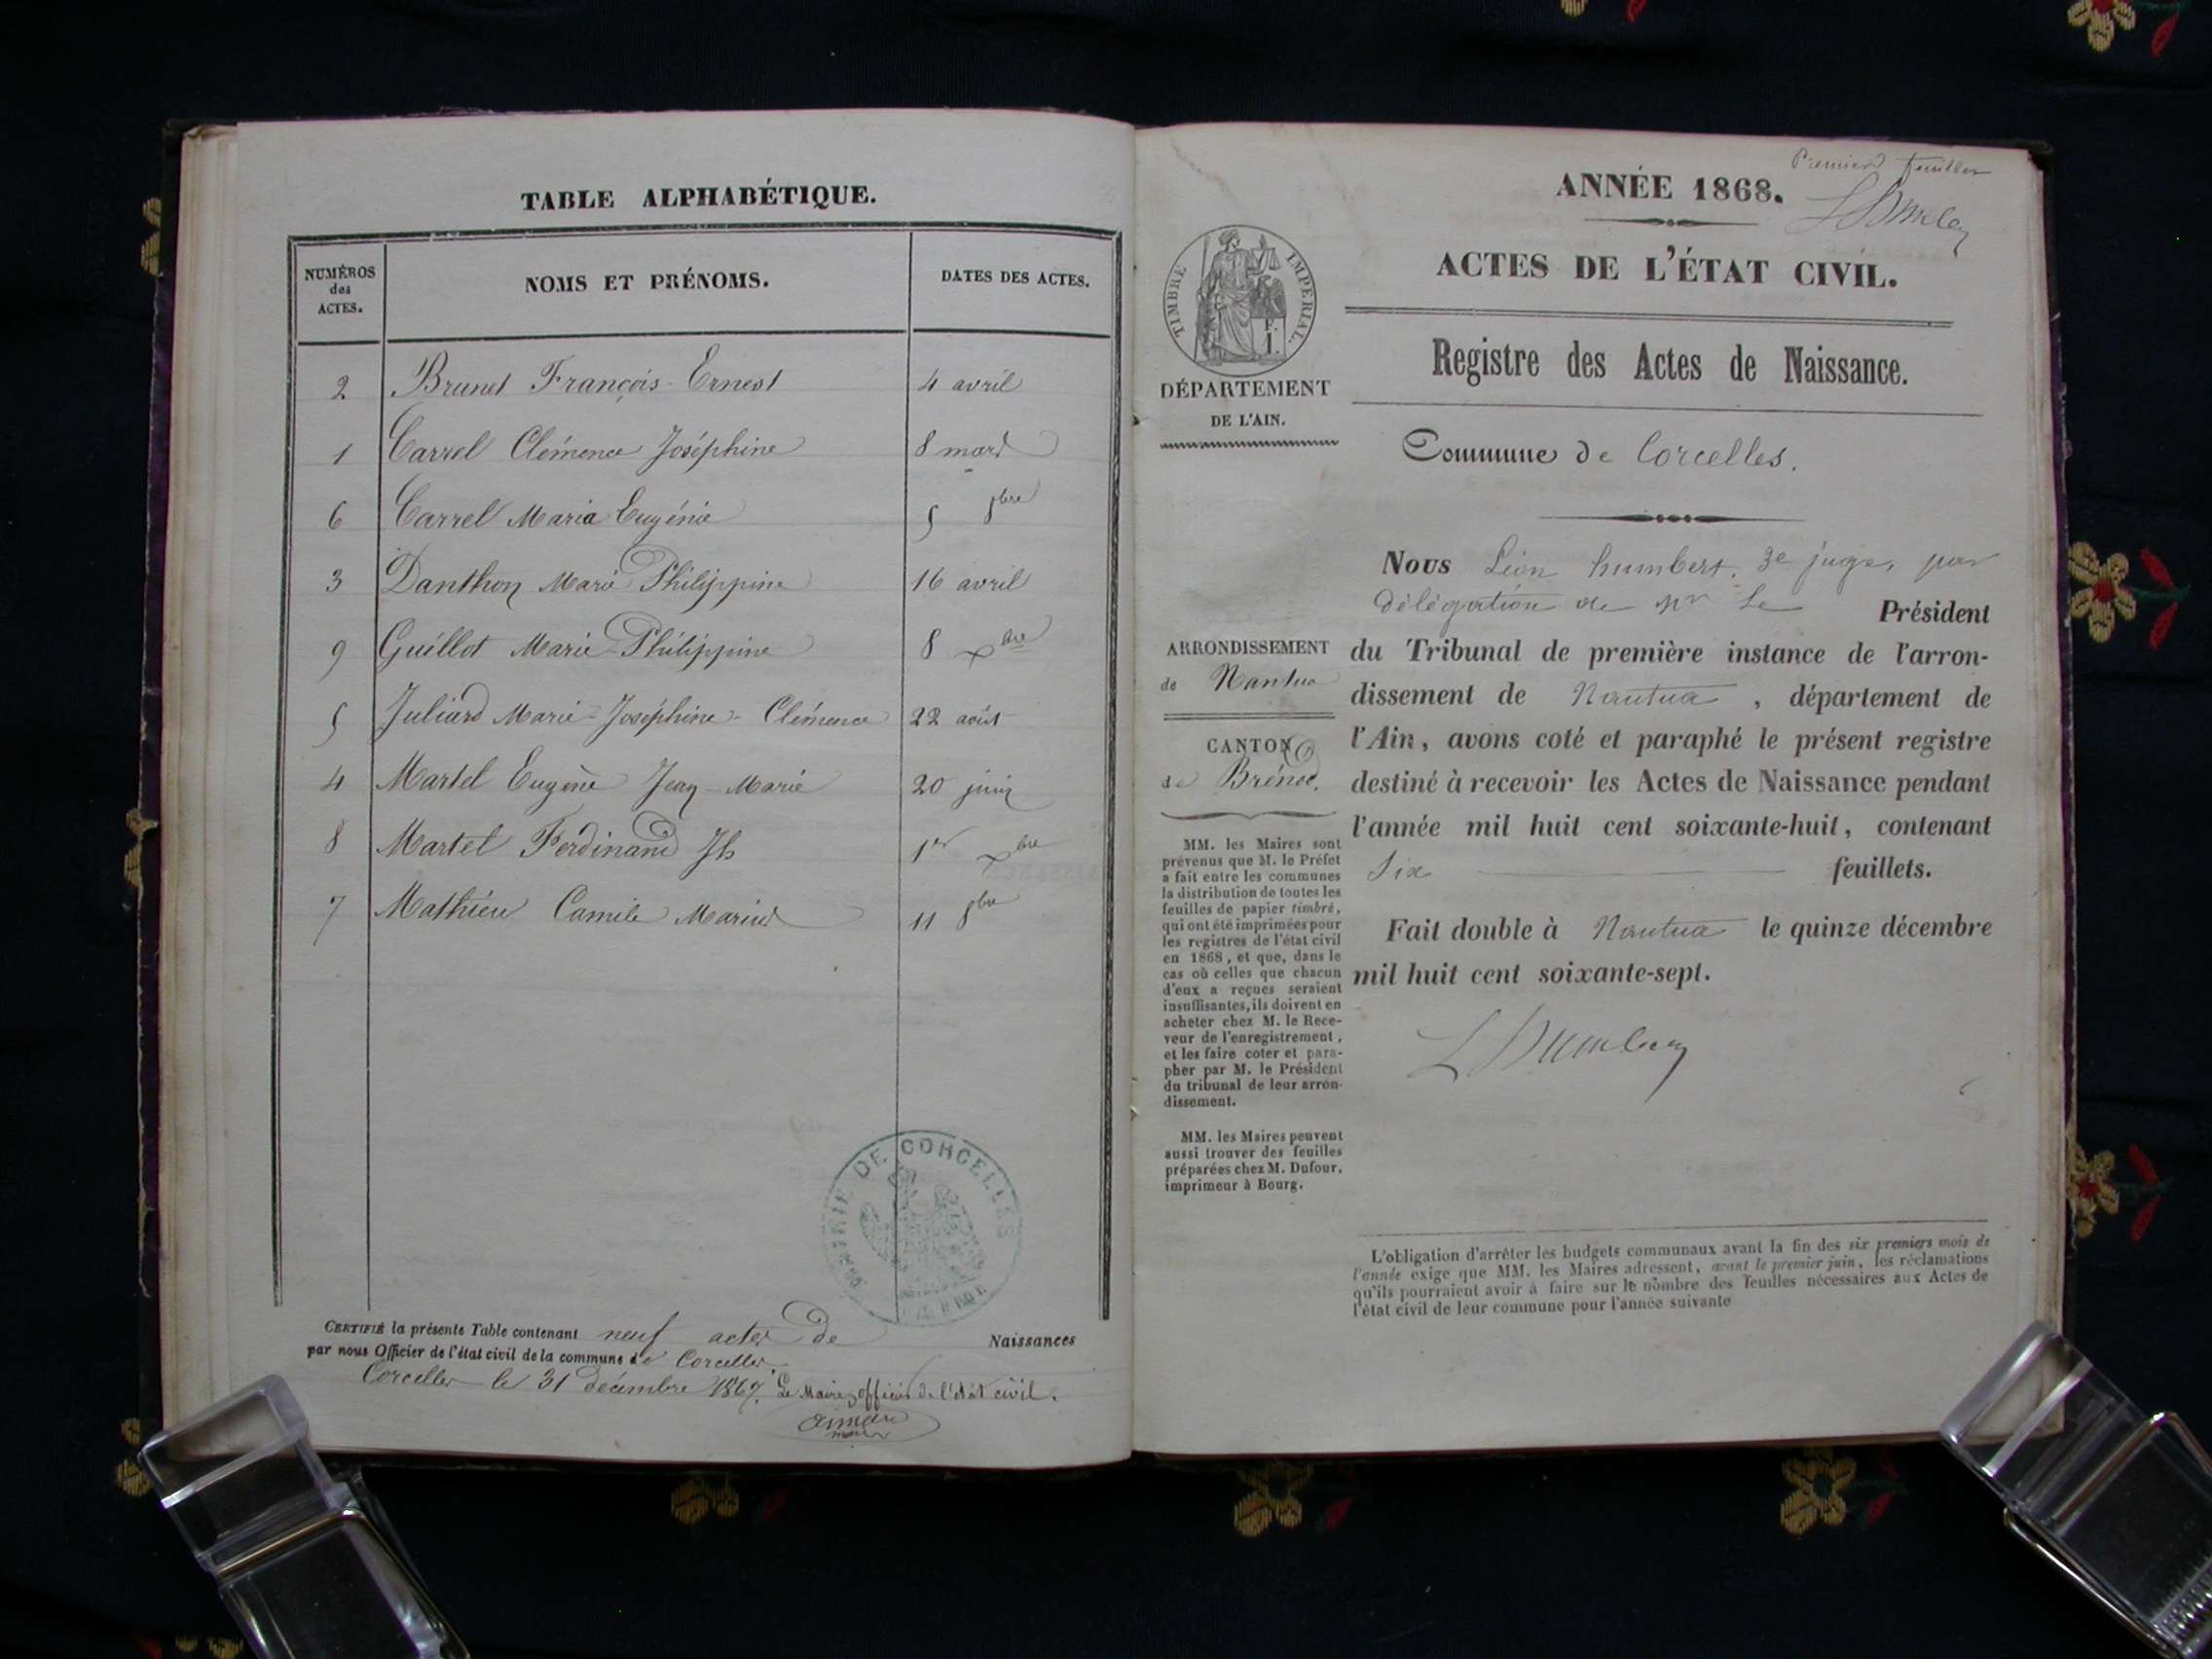 TABLE ALPHABÉTIQUE.
NUMÉROS des ACTES.
NOMS ET PRÉNOMS.
DATES DES ACTES.
2 Brunet François-Ernest 4 avril
1 Carrel Clémence Joséphine 8 mars
6 Carrel Maria Eugénie 5 8bre
3 Danthon Marie Philippine 16 avril
9 Guillot Marie Philippine 8 xbre
5 Juliard Marie-Joséphine-Clémence 22 août
4 Martel Eugène Jean-Marie 20 juin
8 Martel Ferdinand Jh 1er xbre
7 Mathieu Camile Marius 11 8bre
MAIRIE DE CORCELLES
CERTIFIÉ la présente Table contenant neuf actes de Naissances
par nous Officier de l'état civil de la commune de Corcelles.
Corcelles le 31 décembre 1867. Le Maire, officier de l'état civil.
maire
Premier feuillet
ANNÉE 1868.
LHumbert
ACTES DE L'ÉTAT CIVIL.
TIMBRE IMPÉRIAL.
F.
1.
Registre des Actes de Naissance.
DÉPARTEMENT
DE L'AIN.
Commune de Corcelles.
Nous Léon humbert, 3e juge, par
délégation de Mr Le Président
du Tribunal de première instance de l'arron-
dissement de Nantua, département de
l'Ain, avons coté et paraphé le présent registre
destiné à recevoir les Actes de Naissance pendant
l'année mil huit cent soixante-huit, contenant
Six feuillets.
Fait double à Nantua le quinze décembre
mil huit cent soixante-sept.
LHumbert
ARRONDISSEMENT
de Nantua
CANTON
de Brénod.
MM. les Maires sont
prévenus que M. le Préfet
a fait entre les communes
la distribution de toutes les
feuilles de papier timbré,
qui ont été imprimées pour
les registres de l'état civil
en 1868, et que, dans le
cas où celles que chacun
d'eux a reçues seraient
insuffisantes, ils doivent en
acheter chez M. le Rece-
veur de l'enregistrement,
et les faire coter et para-
pher par M. le Président
du tribunal de leur arron-
dissement.
MM. les Maires peuvent
aussi trouver des feuilles
préparées chez M. Dufour,
imprimeur à Bourg.
L'obligation d'arrêter les budgets communaux avant la fin des six premiers mois de
l'année exige que MM. les Maires adressent, avant le premier juin, les réclamations
qu'ils pourraient avoir à faire sur le nombre des feuilles nécessaires aux Actes de
l'état civil de leur commune pour l'année suivante